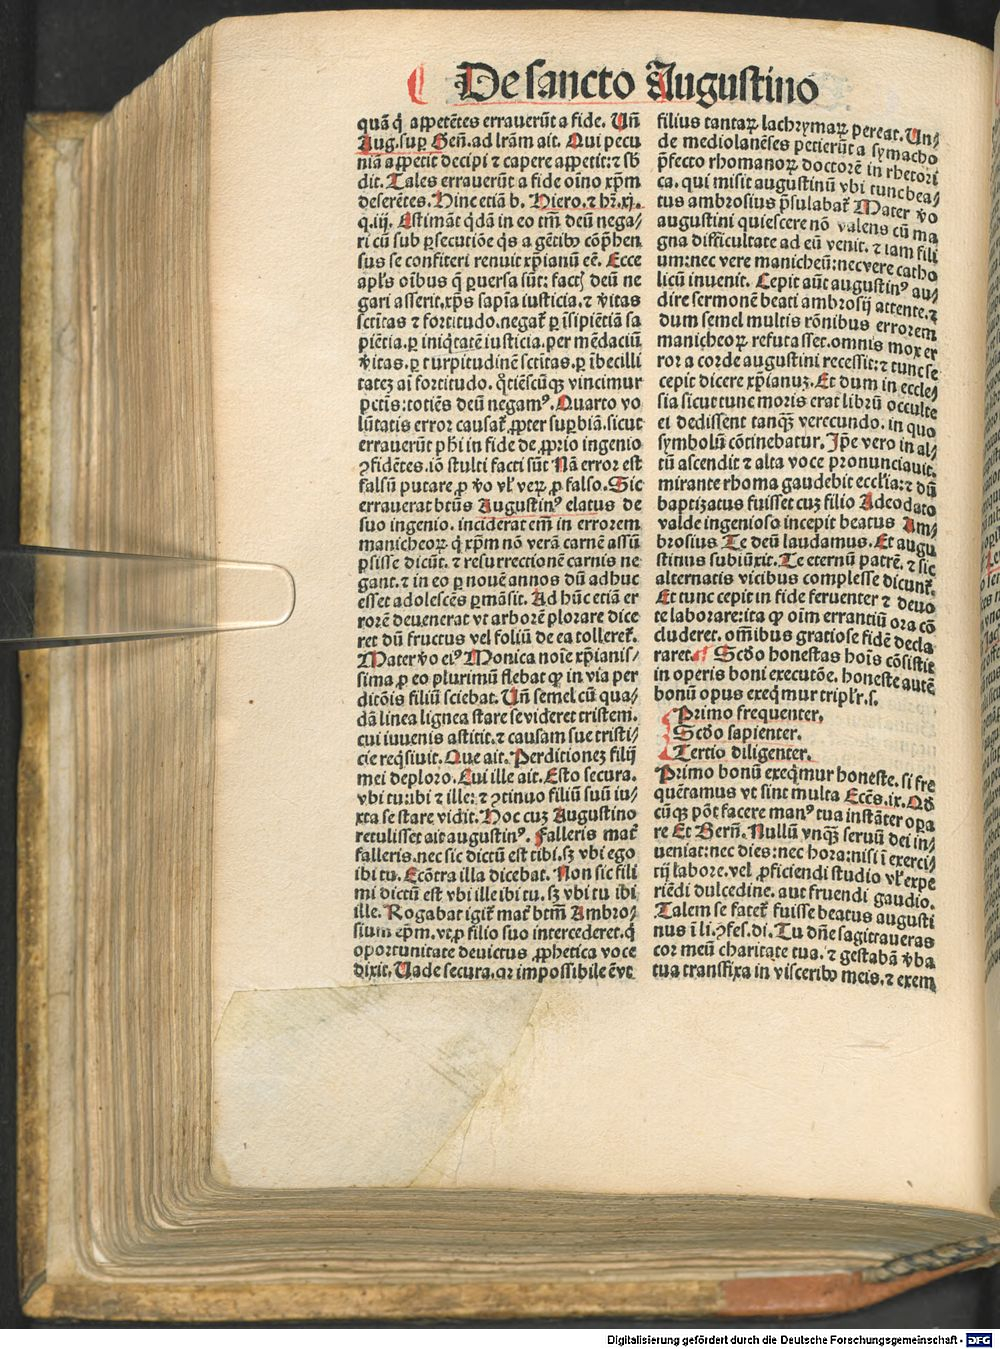 De sancto Augustino
quā q̄ appetētes errauerūt a fide. Uñ
Aug. sup̱ Geñ. ad lr̄am ait. Qui pecu
niā appetit decipi ⁊ capere appetit: ⁊ sb̄
dit. Tales errauerūt a fide oīno xp̄m
deserētes. Hinc etiā b. Hiero. ⁊ hr̄. xj.
q. iij. Estimāt q̄dā in eo tm̄ deū nega⸗
ri cū sub ꝑsecutiōe q̄s a gētibꝰ cōp̄hen
sus se confiteri renuit xp̄ianū eē. Ecce
apl̄s oībus q̄ ꝑuersa sūt: factꝭ deū ne
gari asserit. xp̄s sapīa iusticia. ⁊ v̄itas
sctītas ⁊ fortitudo. negat̄ ꝑ īsipiētiā sa
piētia. ꝑ iniq̄tatē iusticia. per mēdaciū
v̄itas. ꝑ turpitudinē sctītas. ꝑ ībecilli
tateꝫ aī fortitudo. q̄tiēscūqꝫ vincimur
pctīs: totiēs deū negamꝰ. Quarto vo
lūtatis error causat̄ ꝓpter suꝑbiā. sicut
errauerūt pħi in fide de ꝓprio ingenio
ꝯfidētes. iō stulti facti sūt Nā error est
falsū putare ꝓ v̄o vl̄ veꝝ ꝓ falso. Sic
errauerat btūs Augustinꝰ elatus de
suo ingenio. inciderat em̄ in errorem
manicheoꝝ q̄ xp̄m nō verā carnē assū
psisse dicūt. ⁊ resurrectionē carnis ne
gant. ⁊ in eo ꝑ nouē annos dū adhuc
esset adolescēs ꝑmāsit. Ad hūc etiā er
rorē deuenerat vt arborē plorare dice
ret dū fructus vel foliū de ea tolleret̄.
Mater v̄o eiꝰ Monica noīe xp̄ianis⸗
sima ꝓ eo plurimū flebat qꝫ in via per
ditōis filiū sciebat. Uñ semel cū qua⸗
dā linea lignea stare se videret tristem.
cui iuuenis astitit. ⁊ causam sue tristi⸗
cie req̄siuit. Que ait. Perditioneꝫ filij
mei deploro. Cui ille ait. Esto secura.
vbi tu: ibi ⁊ ille: ⁊ ꝯtinuo filiū suū iu⸗
xta se stare vidit. Hoc cuꝫ Augustino
retulisset ait augustinꝰ. Falleris mat̄
falleris. nec sic dictū est tibi. sꝫ vbi ego
ibi tu. Ecōtra illa dicebat. Non sic fili
mi dictū est vbi ille ibi tu. sꝫ vbi tu ibi
ille. Rogabat igit̄ mat̄ btm̄ Ambro⸗
sium ep̄m. vt ꝓ filio suo intercederet. q̄
oportunitate deuictus ꝓphetica voce
dixit. Uade secura. qꝛ impossibile ē vt
filius tantaꝝ lachrymaꝝ pereat. Un⸗
de mediolanēses petierūt a symacho
p̄fecto rhomanoꝝ doctorē in rhetori
ca. qui misit augustinū vbi tunc bea⸗
tus ambrosius p̄sulabat̄ Mater v̄o
augustini quiescere nō valens cū ma
gna difficultate ad eū venit. ⁊ iam fili
um: nec vere manicheū: nec vere catho
licū inuenit. Cepit aūt augustinꝰ au⸗
dire sermonē beati ambrosij attente. ⁊
dum semel multis rōnibus errorem
manicheoꝝ refutasset. omnis mox er
ror a corde augustini recessit: ⁊ tunc se
cepit dicere xp̄ianuꝫ. Et dum in eccle⸗
sia sicut tunc moris erat librū occulte
ei dedissent tanqꝫ verecundo. in quo
symbolū cōtinebatur. Ip̄e vero in al⸗
tū ascendit ⁊ alta voce pronunciauit.
mirante rhoma gaudebit eccl̄ia: ⁊ dū
baptizatus fuisset cuꝫ filio Adeodato
valde ingenioso incepit beatus Am⸗
brosius Te deū laudamus. Et augu
stinus subiūxit. Te eternū patrē. ⁊ sic
alternatis vicibus complesse dicunt̄.
Et tunc cepit in fide feruenter ⁊ deuo
te laborare: ita qꝫ oīm errantiū ora cō
cluderet. om̄ibus gratiose fidē decla
raret. Scd̄o honestas hoīs cōsistit
in operis boni executōe. honeste autē
bonū opus exeq̄mur tripl̄r. s.
Primo frequenter.
Scd̄o sapienter.
Tertio diligenter.
Primo bonū exeq̄mur honeste. si fre
quētamus vt sint multa Eccēs. ix. Qd̄
cūqꝫ pōt facere manꝰ tua instāter oꝑa
re Et Berñ. Nullū vnqꝫ seruū dei in⸗
ueniat: nec dies: nec hora: nisi ī exerci⸗
tij labore. vel ꝓficiendi studio vl̄ expe
riēdi dulcedine. aut fruendi gaudio.
Talem se fatet̄ fuisse beatus augusti
nus ī li. ꝯfes. di. Tu dn̄e sagittaueras
cor meū charitate tua. ⁊ gestabā v̄ba
tua transfixa in visceribꝰ meis. ⁊ exem
Digitalisierung gefördert durch die Deutsche Forschungsgemeinschaft - DFG